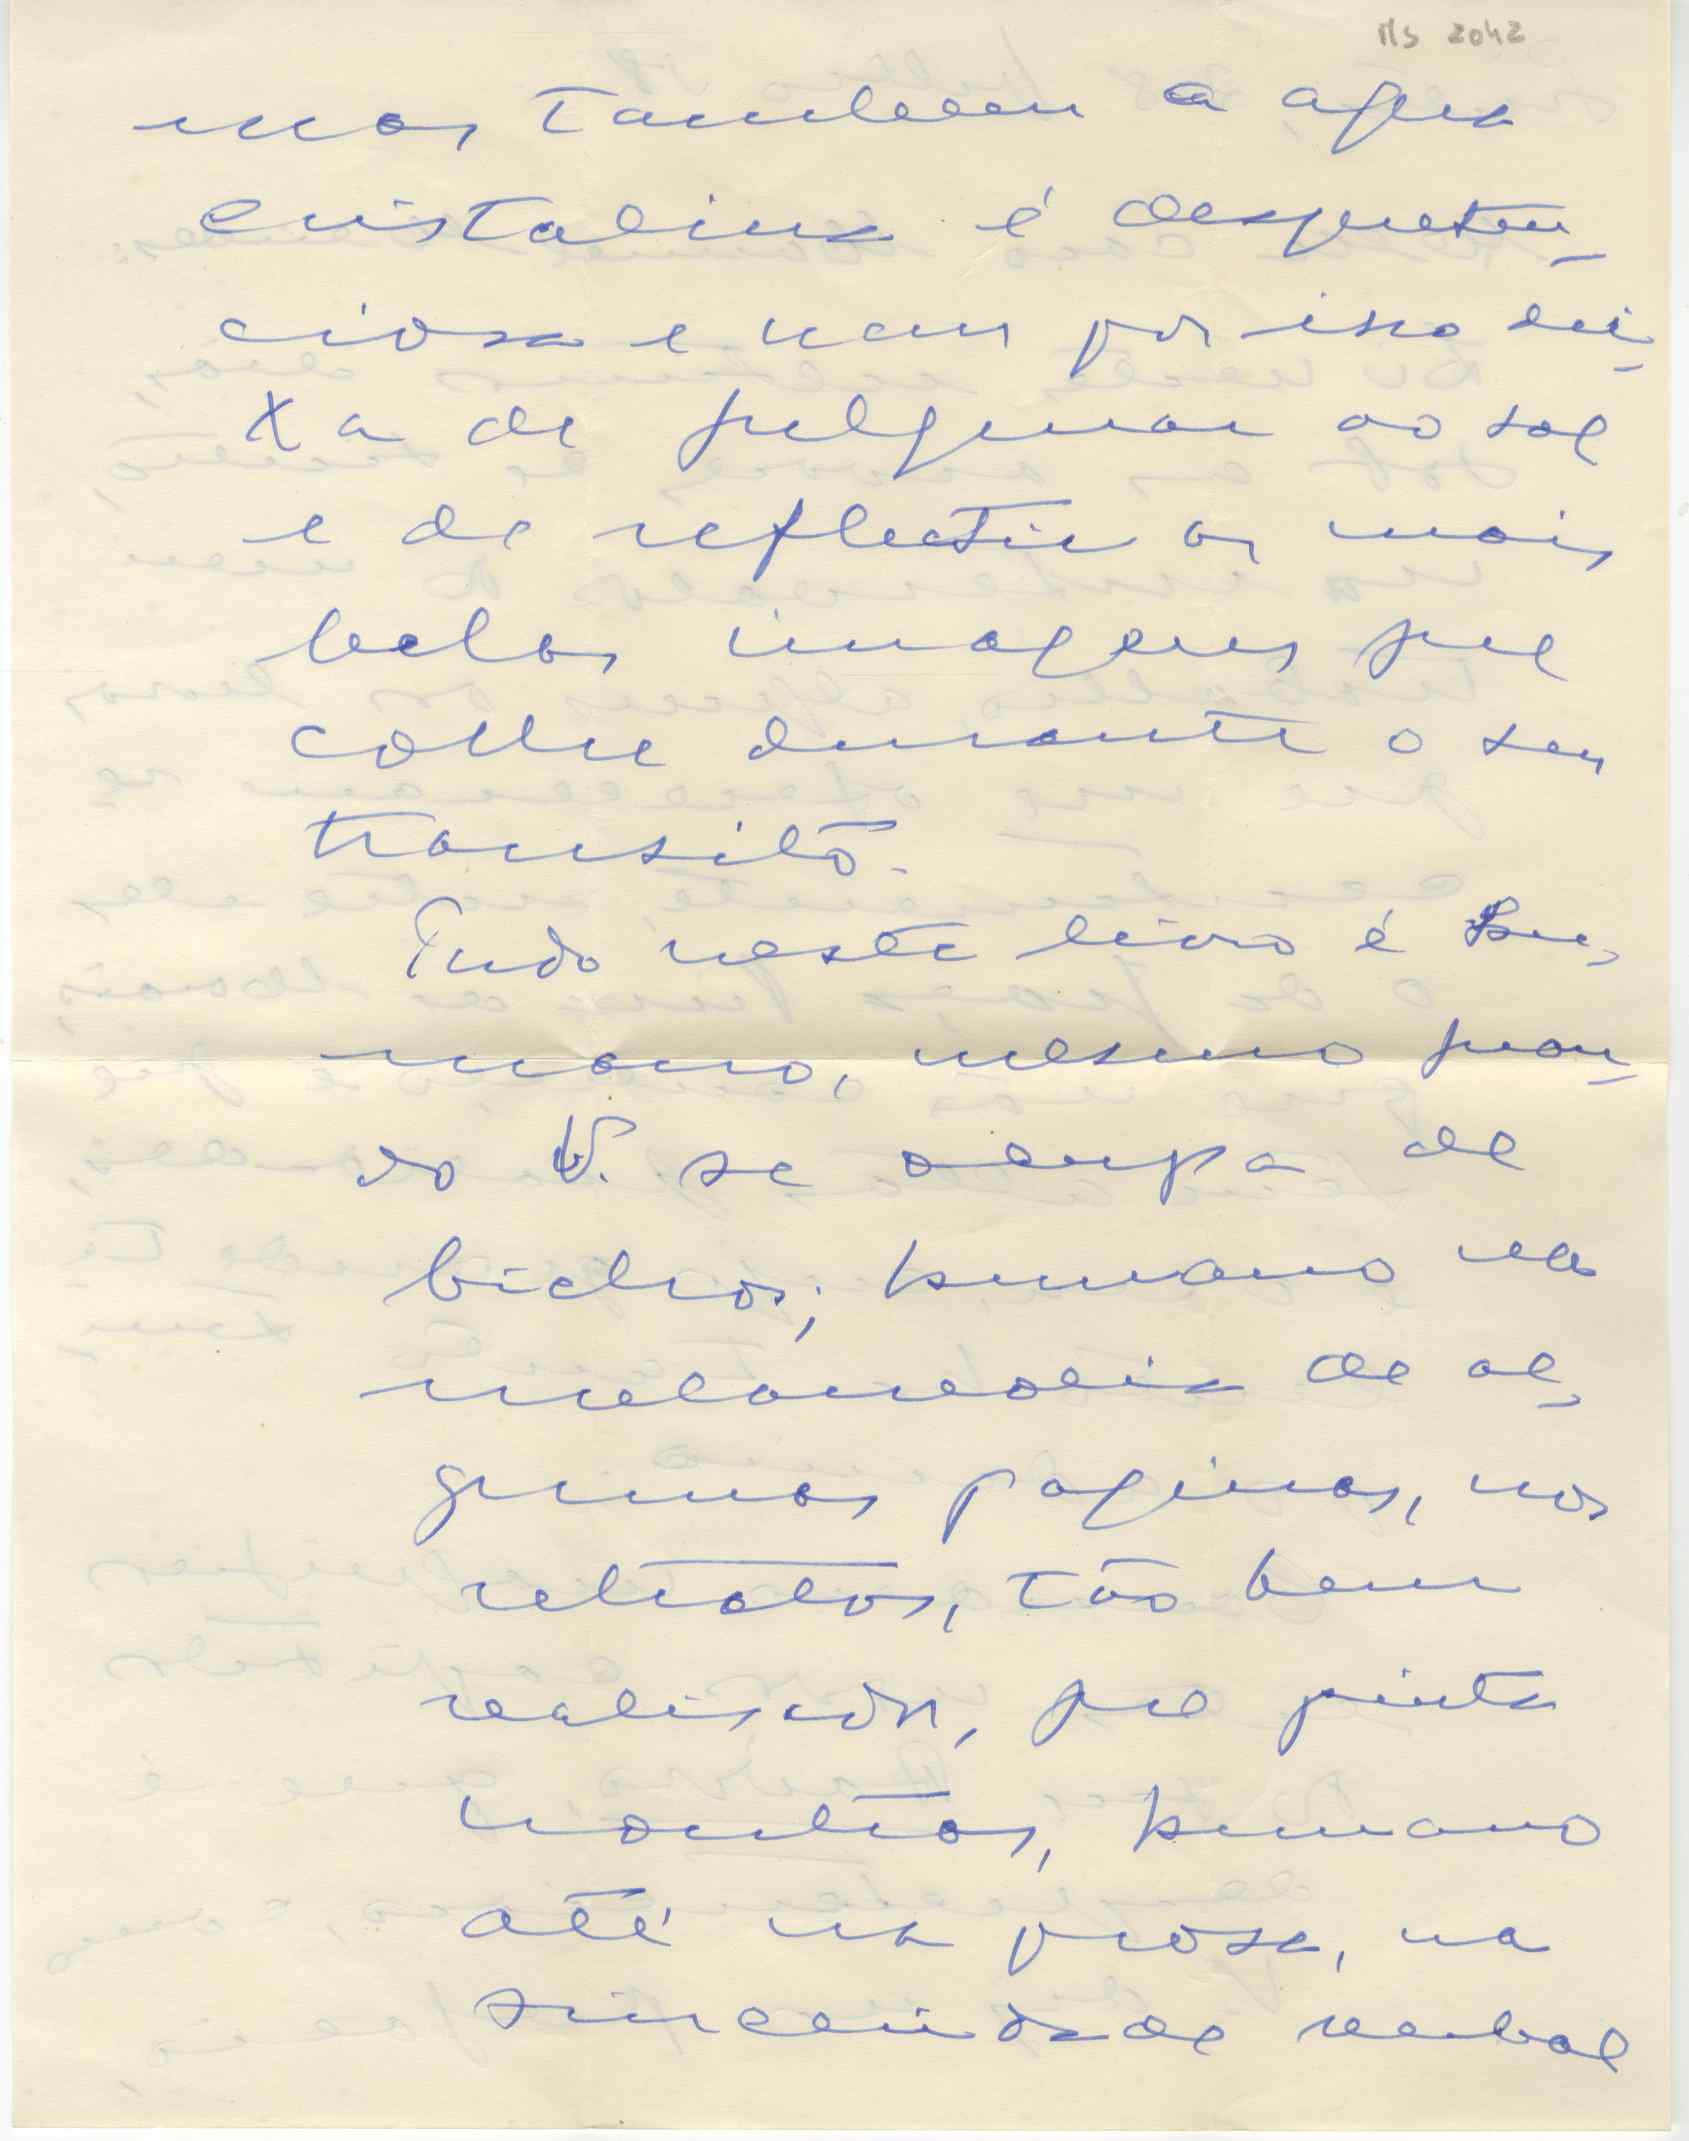 MS 2042
mas tambem a agua
cristalina é despreten-
ciosa e nem por isso dei-
xa de fulgurar ao sol
e de reflectir as mais
belas imagens que
colhe durante o seu
transito.
Tudo neste livro é hu-
mano, mesmo quan-
do V. se ocupa de
bichos; humano na
melancolia de al-
gumas paginas, nos
retratos, tão bem
realisados, que pinta
humano
até na prosa, na
sinceridade verbal